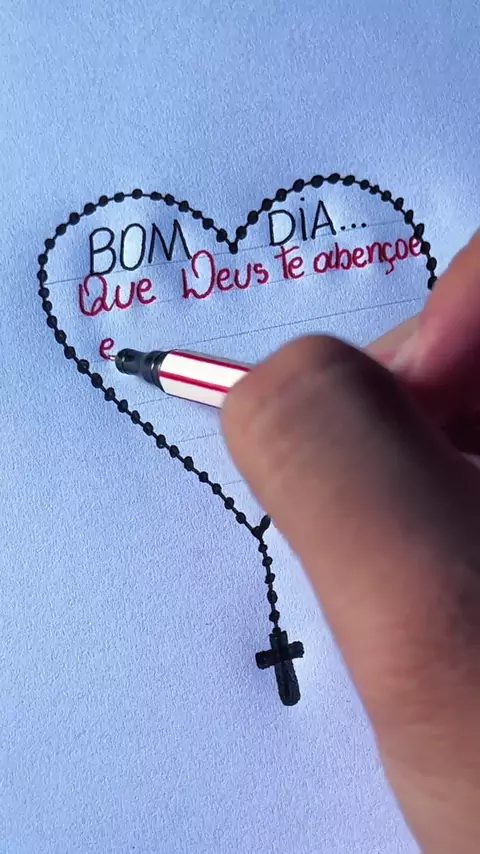 BOM DIA...
Que Deus te abençoe
e